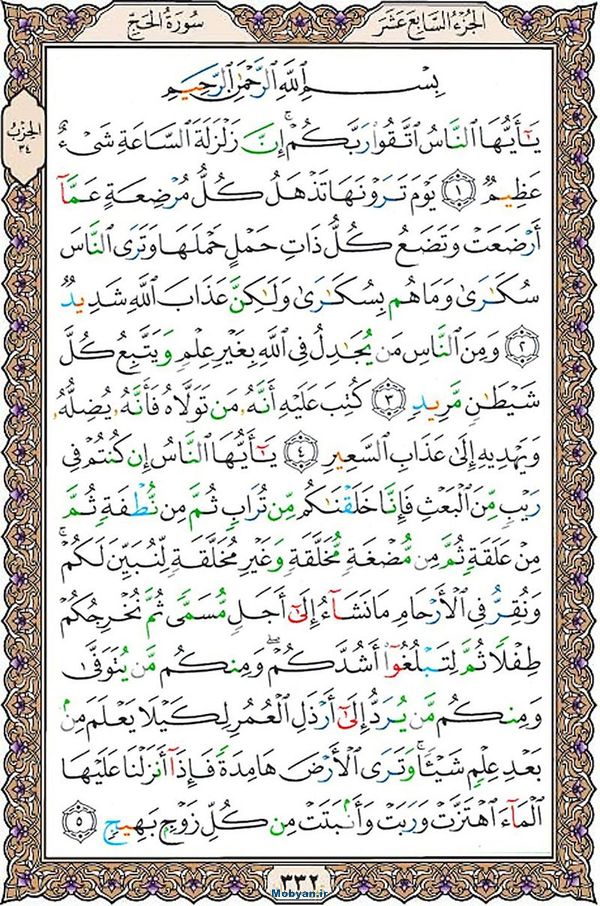 الجُزْءُ السَّابِعَ عَشَرَ
سُورَةُ الحَجِّ
الحِزْبُ
٣٤
بِسْمِ اللَّهِ الرَّحْمَٰنِ الرَّحِيمِ
يَٰٓأَيُّهَا النَّاسُ اتَّقُوا رَبَّكُمْ ۚ إِنَّ زَلْزَلَةَ السَّاعَةِ شَىْءٌ
عَظِيمٌ ١ يَوْمَ تَرَوْنَهَا تَذْهَلُ كُلُّ مُرْضِعَةٍ عَمَّآ
أَرْضَعَتْ وَتَضَعُ كُلُّ ذَاتِ حَمْلٍ حَمْلَهَا وَتَرَى النَّاسَ
سُكَٰرَىٰ وَمَا هُم بِسُكَٰرَىٰ وَلَٰكِنَّ عَذَابَ اللَّهِ شَدِيدٌ
٢ وَمِنَ النَّاسِ مَن يُجَٰدِلُ فِى اللَّهِ بِغَيْرِ عِلْمٍ وَيَتَّبِعُ كُلَّ
شَيْطَٰنٍ مَّرِيدٍ ٣ كُتِبَ عَلَيْهِ أَنَّهُۥ مَن تَوَلَّاهُ فَأَنَّهُۥ يُضِلُّهُۥ
وَيَهْدِيهِ إِلَىٰ عَذَابِ السَّعِيرِ ٤ يَٰٓأَيُّهَا النَّاسُ إِن كُنتُمْ فِى
رَيْبٍ مِّنَ الْبَعْثِ فَإِنَّا خَلَقْنَٰكُم مِّن تُرَابٍ ثُمَّ مِن نُّطْفَةٍ ثُمَّ
مِنْ عَلَقَةٍ ثُمَّ مِن مُّضْغَةٍ مُّخَلَّقَةٍ وَغَيْرِ مُخَلَّقَةٍ لِّنُبَيِّنَ لَكُمْ ۚ
وَنُقِرُّ فِى الْأَرْحَامِ مَا نَشَآءُ إِلَىٰٓ أَجَلٍ مُّسَمًّى ثُمَّ نُخْرِجُكُمْ
طِفْلًا ثُمَّ لِتَبْلُغُوٓا أَشُدَّكُمْ ۖ وَمِنكُم مَّن يُتَوَفَّىٰ
وَمِنكُم مَّن يُرَدُّ إِلَىٰٓ أَرْذَلِ الْعُمُرِ لِكَيْلَا يَعْلَمَ مِنۢ
بَعْدِ عِلْمٍ شَيْـًٔا ۚ وَتَرَى الْأَرْضَ هَامِدَةً فَإِذَآ أَنزَلْنَا عَلَيْهَا
الْمَآءَ اهْتَزَّتْ وَرَبَتْ وَأَنۢبَتَتْ مِن كُلِّ زَوْجٍۭ بَهِيجٍ ٥
٣٣٢
Mobyan.ir